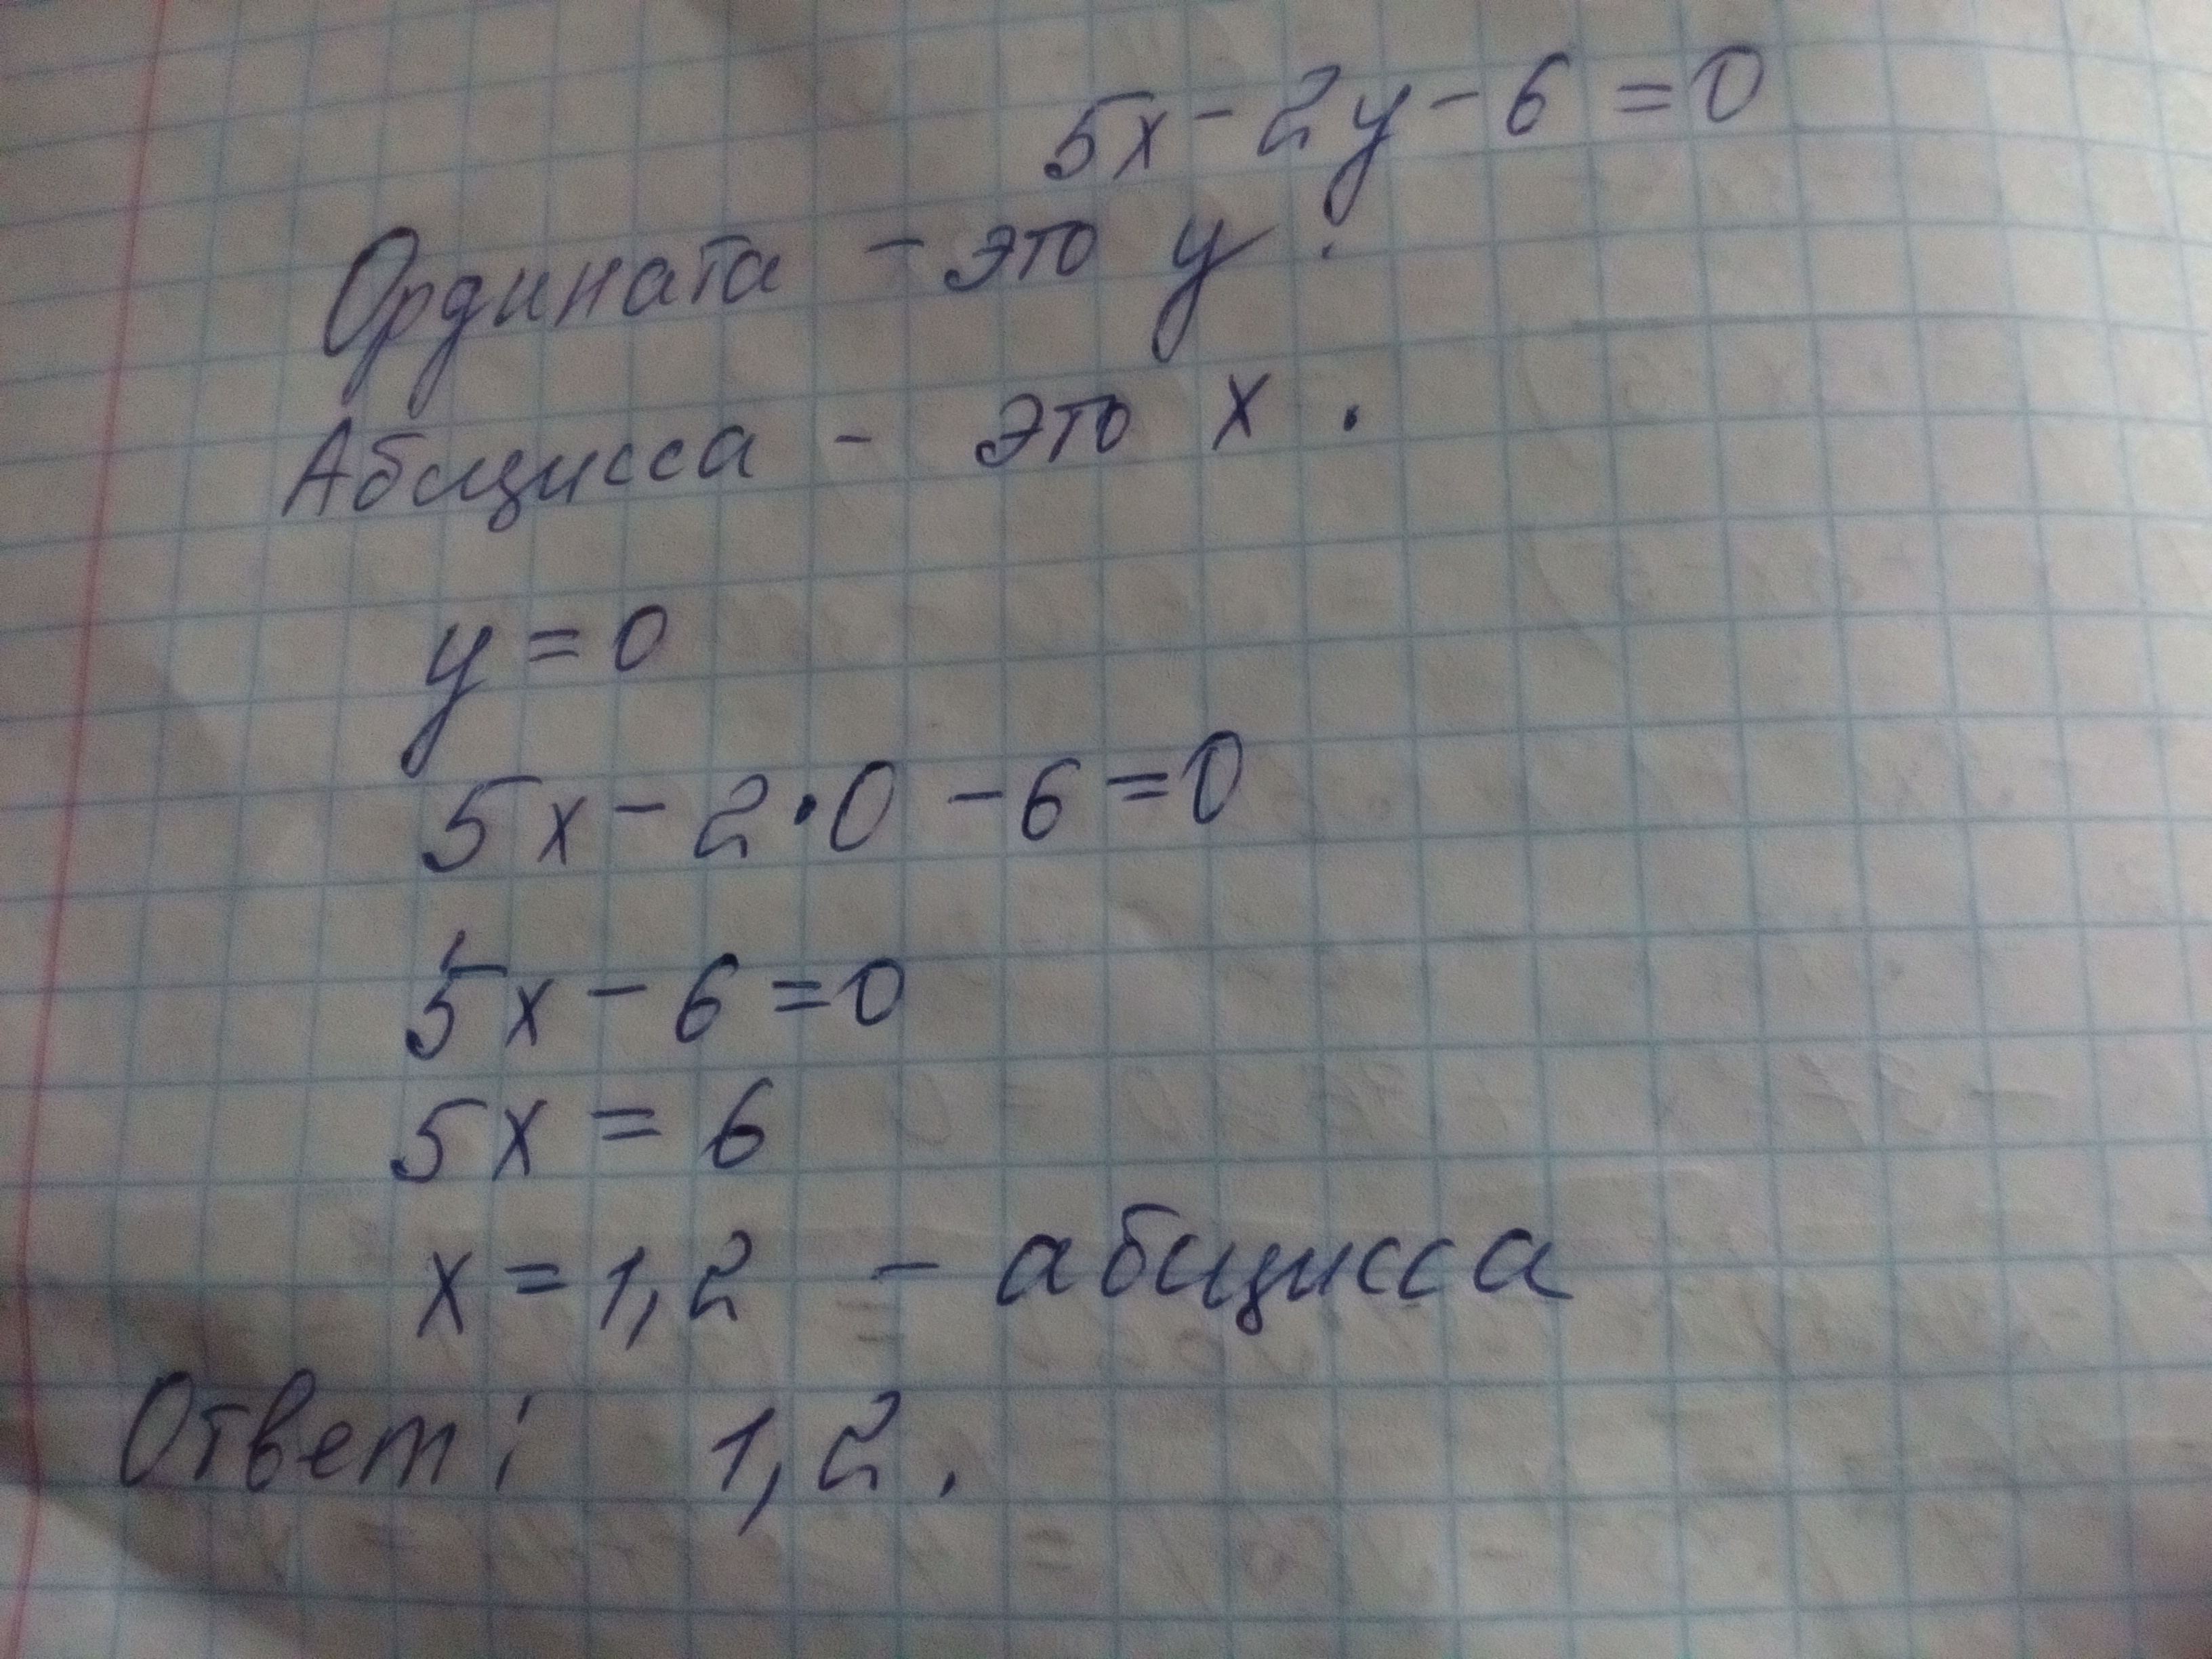 5x - 2y - 6 = 0
Ордината - это y.
Абсцисса - это x.
y = 0
5x - 2•0 - 6 = 0
5x - 6 = 0
5x = 6
x = 1,2 - абсцисса
Ответ: 1,2.